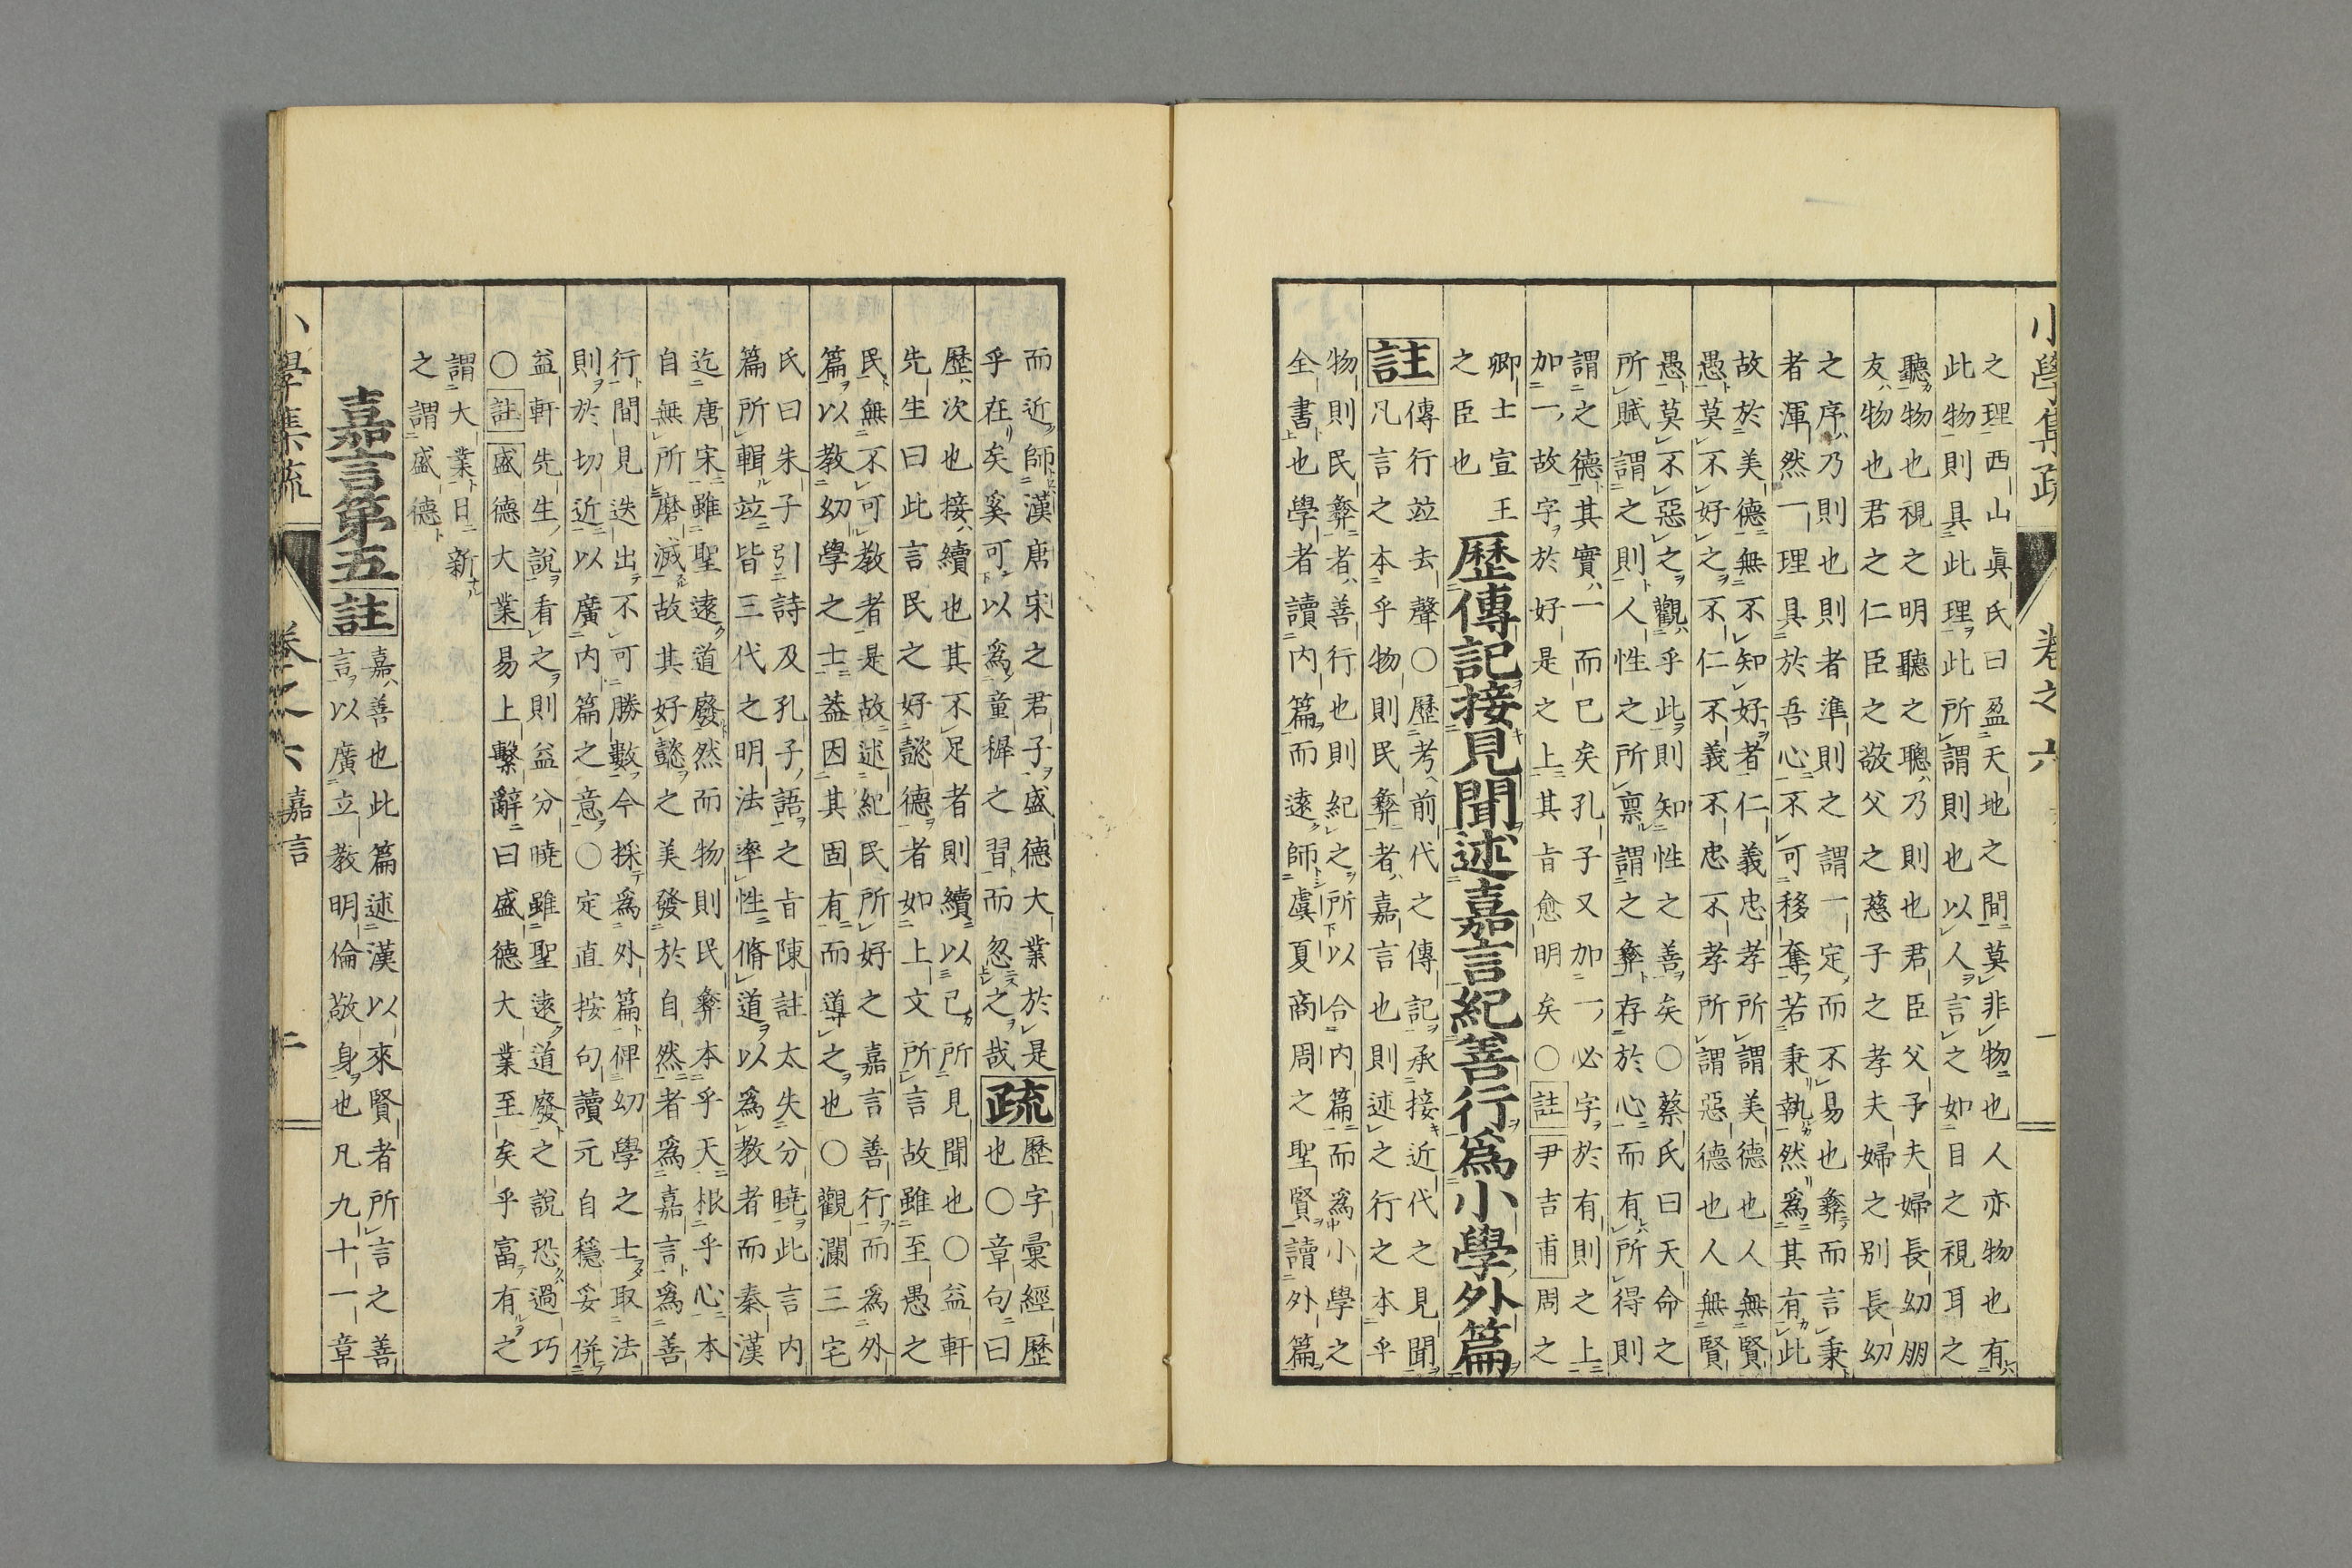 小學集疏 卷之六 一
之理西山眞氏曰盈天地之間莫非物也人亦物也有
此物則具此理此所謂則也以人言之如目之視耳之
聽物也視之明聽之聰乃則也君臣父子夫婦長幼朋
友物也君之仁臣之敬父之慈子之孝夫婦之別長幼
之序乃則也則者準則之謂一定而不易也彝而言秉
者渾然一理具於吾心不可移奪若秉執然爲其有此
故於美德無不知好者仁義忠孝所謂美德也人無賢
愚莫不好之不仁不義不忠不孝所謂惡德也人無賢
愚莫不惡之觀乎此則知性之善矣○蔡氏曰天命之
所賦謂之則人性之所禀謂之彝存於心而有所得則
謂之德其實一而已矣孔子又加一必字於有則之上
加一故字於好是之上其旨愈明矣○註尹吉甫周之
卿士宣王
之臣也
歷傳記接見聞述嘉言紀善行爲小學外篇
註
傳行竝去聲○歷考前代之傳記承接近代之見聞
凡言之本乎物則民彝者嘉言也則述之行之本乎
物則民彝者善行也則紀之所以合內篇而爲小學之
全書也學者讀內篇而遠師虞夏商周之聖賢讀外篇
而近師漢唐宋之君子盛德大業於是
乎在矣奚可以爲童穉之習而忽之哉
疏
歷字彙經歷
也○章句曰
歷次也接續也其不足者則續以己所見聞也○益軒
先生曰此言民之好懿德者如上文所言故雖至愚之
民無不可教者是故述紀民所好之嘉言善行而爲外
篇以教幼學之士蓋因其固有而導之也○觀瀾三宅
氏曰朱子引詩及孔子語之旨陳註太失分曉此言內
篇所輯竝皆三代之明法率性脩道以爲教者而秦漢
迄唐宋雖聖遠道廢然而物則民彝本乎天根乎心本
自無所磨滅故其好懿之美發於自然者爲嘉言爲善
行間見迭出不可勝數今採爲外篇俾幼學之士取法
則於切近以廣內篇之意○定直按句讀元自穩妥併
益軒先生說看之則益分曉雖聖遠道廢之說恐過巧
○註盛德大業易上繫辭曰盛德大業至矣乎富有之
謂大業日新
之謂盛德
嘉言第五
註
嘉善也此篇述漢以來賢者所言之善
言以廣立教明倫敬身也凡九十一章
小學集疏 卷之六 嘉言 二